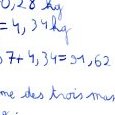 0,28 kg
= 4,34 kg
,7 + 4,34 = 91,62
me des trois mas